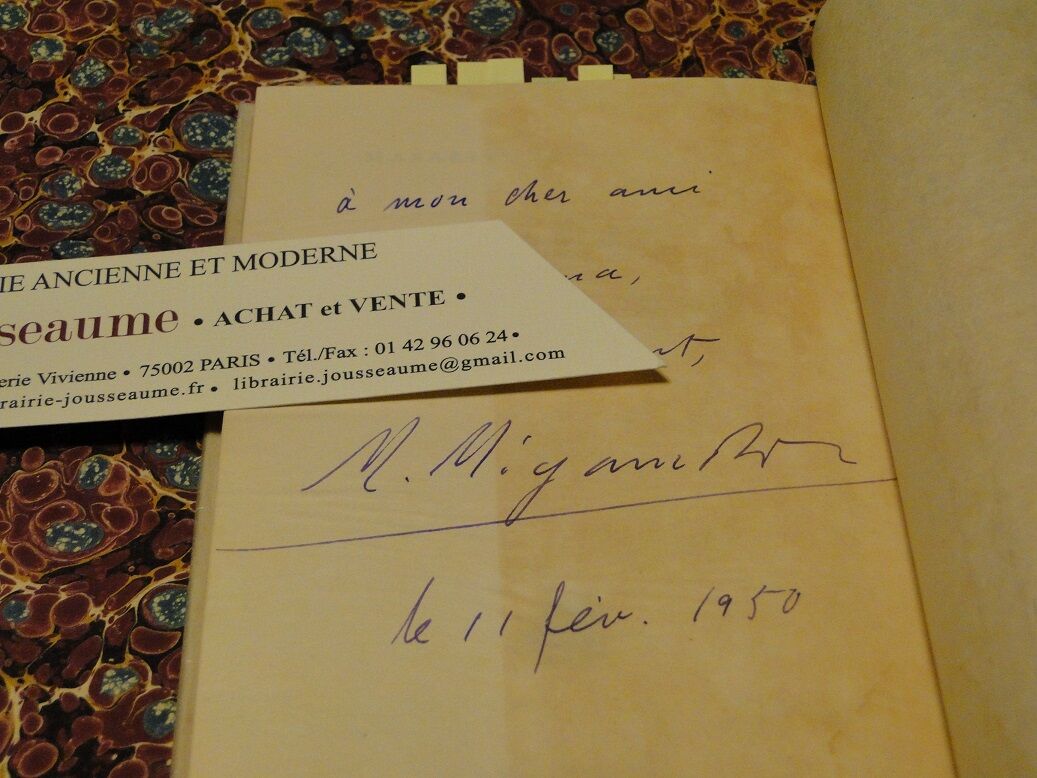 à mon cher ami
IE ANCIENNE ET MODERNE
seaume • ACHAT et VENTE •
erie Vivienne • 75002 PARIS • Tél./Fax : 01 42 96 06 24 •
rairie-jousseaume.fr • librairie.jousseaume@gmail.com
na,
nt,
M.
le 11 fév. 1950